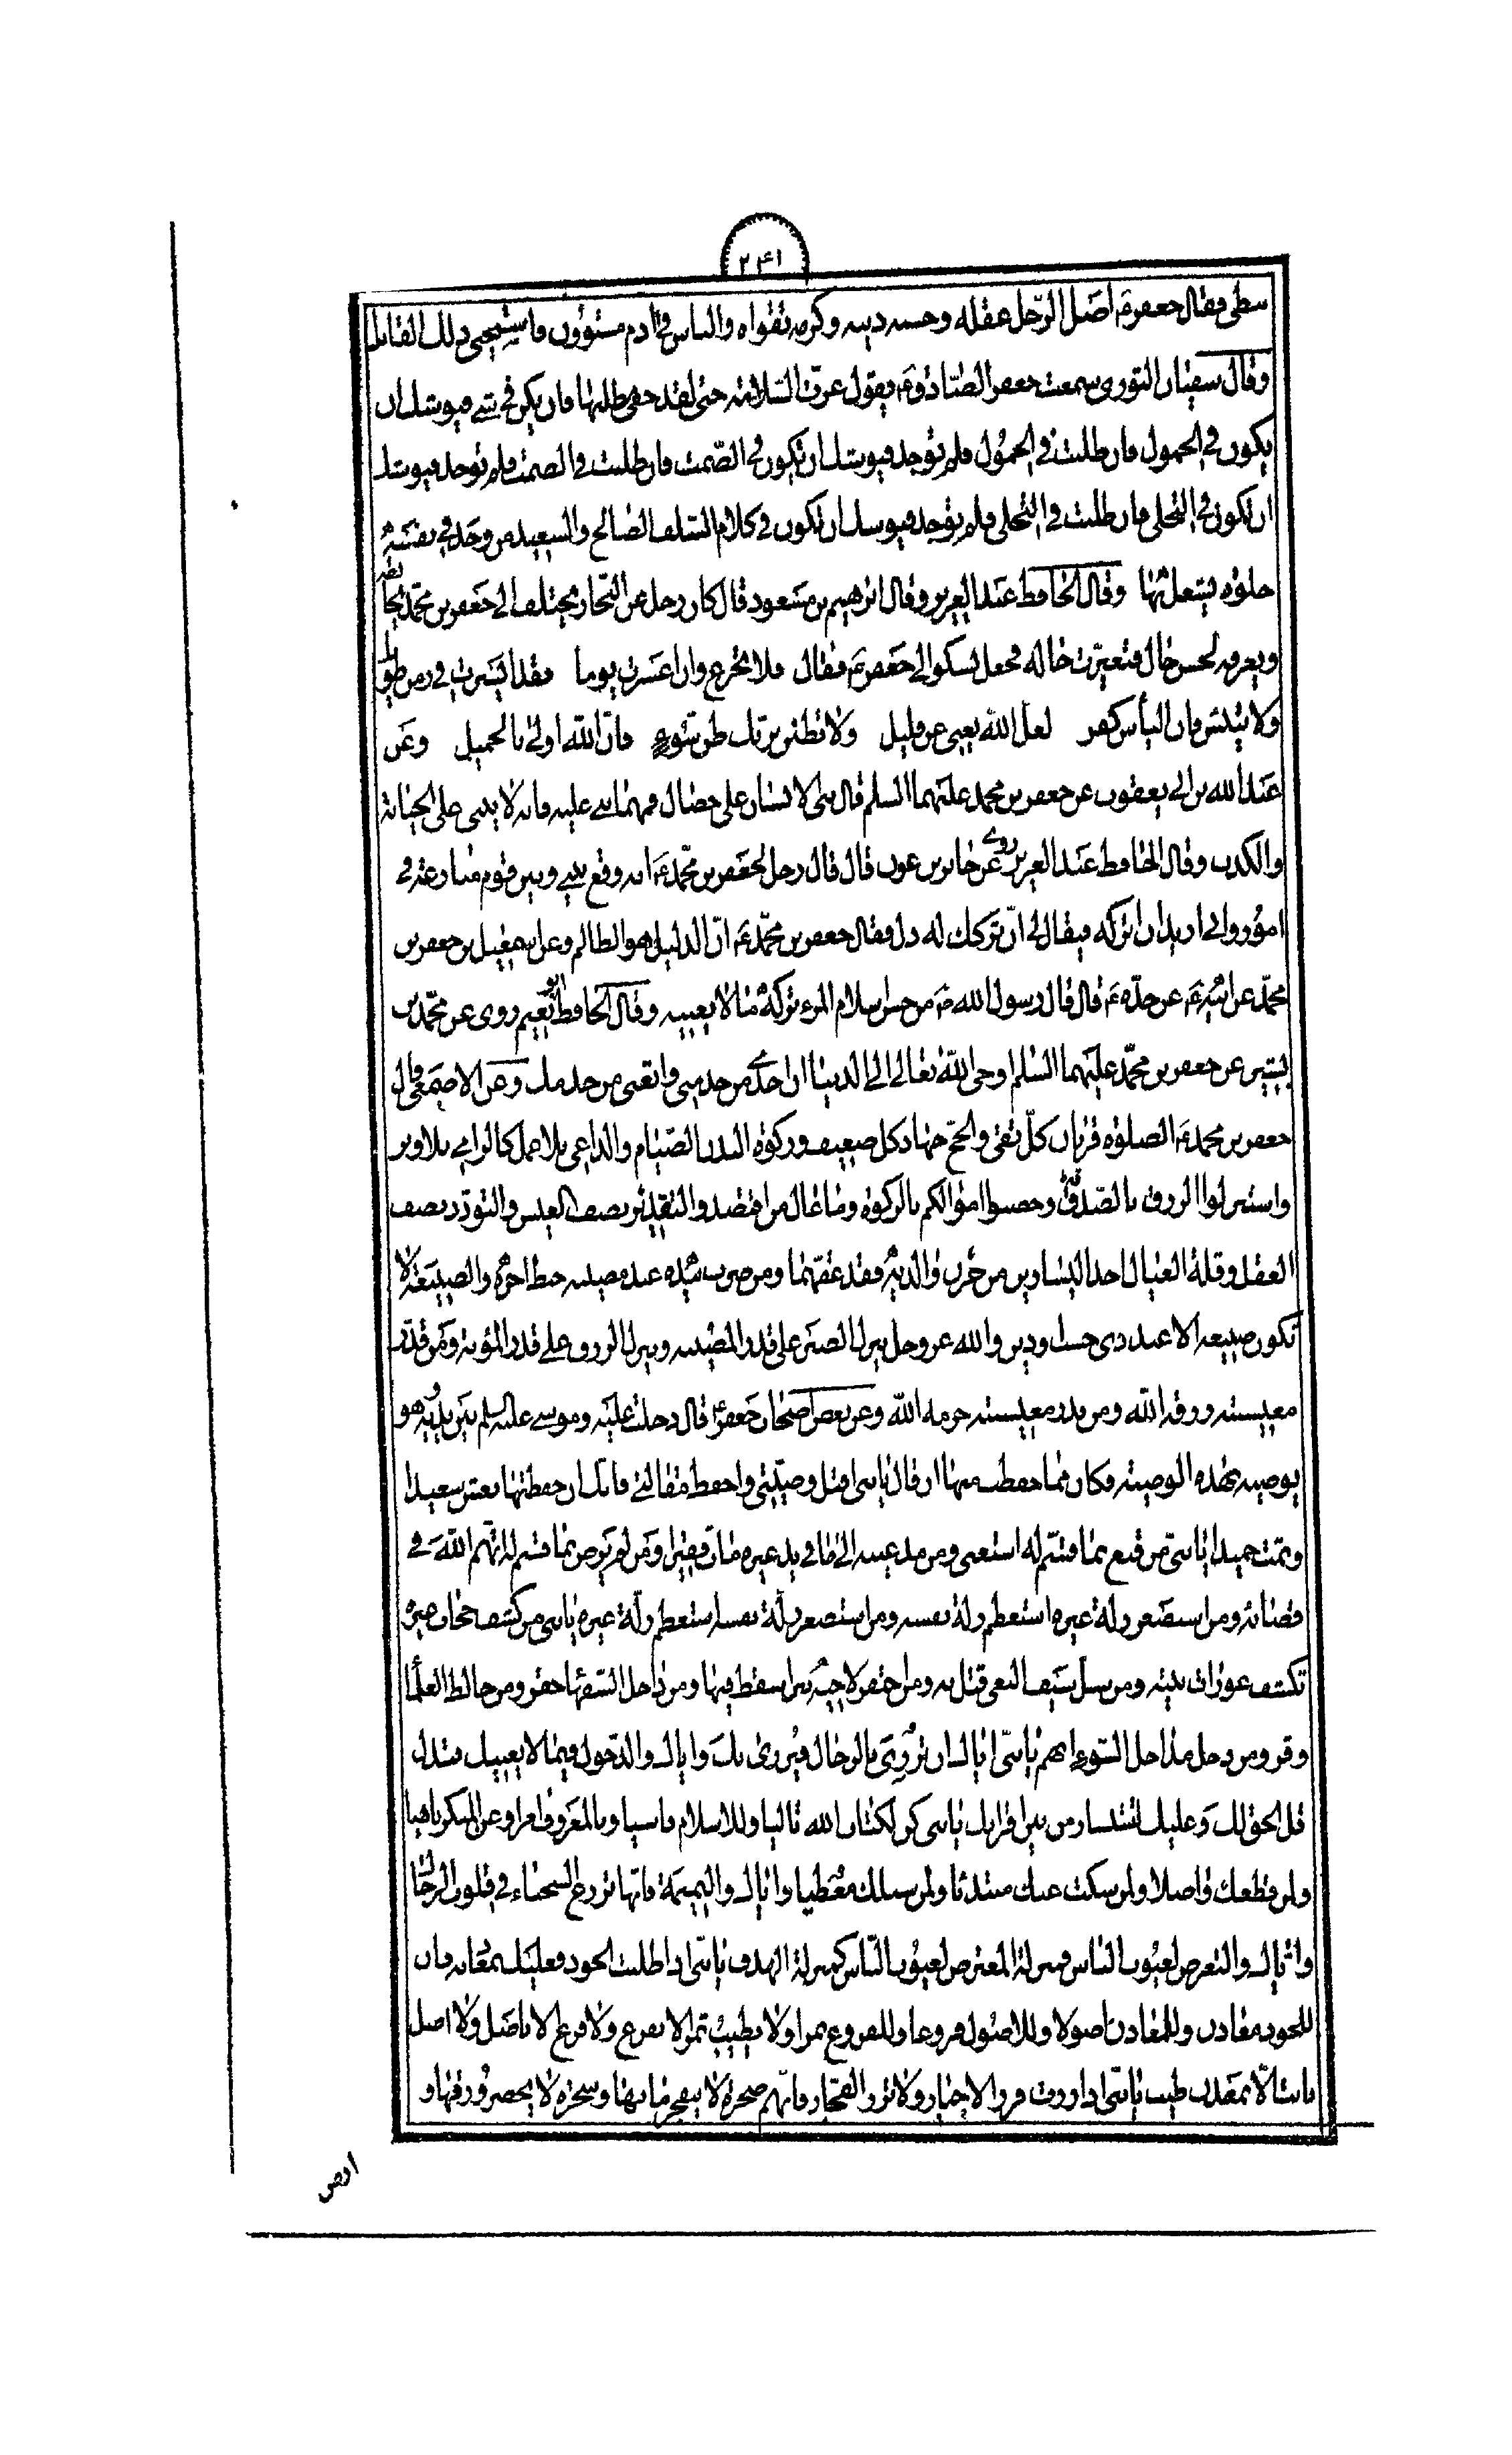 ٢٤١
نبطي فقال جعفر ع أصل الرّجل عقله وحسبه دينه وكرمه تقواه والناس في ادم مستوون فاستحيى ذلك القائل
وقال سفيان الثوري سمعت جعفر الصّادق ع يقول عزّت السّلامة حتى لقد خفي مطلبها فان يكن في شيء فيوشك ان
يكون في الخمول فان طلبت في الخمول فلم توجد فيوشك ان تكون في الصّمت فان طلبت في الصمت فلم توجد فيوشك
ان تكون في التخلي فان طلبت في التخلي فلم توجد فيوشك ان تكون في كلام السّلف الصّالح والسعيد من وجد في نفسه
خلوة يشتغل بها وقال الحافظ عبد العزيز وقال ابرهيم بن مسعود قال كان رجل من التّجار يختلف الى جعفر بن محمّد يخالطه
ويعرفه بحسن حال فتغيّرت حاله فجعل يشكو الى جعفر ع فقال فلا تجزع وان اعسرت يوما فقد ايسرت في زمن طويل
ولا تيئس فان اليأس كفر لعل الله يغني عن قليل ولا تظنن بربّك ظن سوء فانّ الله اولى بالجميل وعن
عبد الله بن ابي يعقوب عن جعفر بن محمد عليهما السلم قال بني الانسان على خصال فمهما بني عليه فانه لا يبنى على الخيانة
والكذب وقال الحافظ عبد العزيز روي عن جابر بن عون قال قال رجل لجعفر بن محمّد ع انه وقع بيني وبين قوم منازعة في
امور واني اريد ان اتركه فيقال لي انّ تركك له ذل فقال جعفر بن محمّد ع انّ الذليل هو الظالم وعن اسمعيل بن جعفر بن
محمّد عن ابيه ع عن جدّه ع قال قال رسول الله ص من حسن اسلام المرء تركه ما لا يعنيه وقال الحافظ ابو نعيم روى عن محمّد بن
بشير عن جعفر بن محمّد عليهما السّلم اوحى الله تعالى الى الدنيا ان اخدمي من خدمني واتعبي من خدمك وعن الاصمعي قال
جعفر بن محمد ع الصلوة قربان كلّ تقي والحجّ جهاد كل ضعيف وزكوة البدن الصّيام والداعي بلا عمل كالرامي بلا وتر
واستنزلوا الرزق بالصّدقة وحصنوا اموالكم بالزكوة وما عال من اقتصد والتقدير نصف العيش والتودّد نصف
العقل وقلة العيال احد اليسارين من حزن والديه فقد عقّهما ومن ضرب بيده عند مصيبته حبط اجره والصنيعة لا
تكون صنيعة الا عند ذي حسب ودين والله عز وجل ينزل الصبر على قدر المصيبة وينزل الرزق على قدر المؤنة ومن قدّر
معيشته رزقه الله ومن بذر معيشته حرمه الله وعن بعض اصحاب جعفر ع قال دخلت عليه وموسى عليه السلم بين يديه وهو
يوصيه بهذه الوصية فكان ممّا حفظت منها ان قال يا بني اقبل وصيّتي واحفظ مقالتي فانّك ان حفظتها تعش سعيدا
وتمت حميدا يا بنيّ من قنع بما قسّم له استغنى ومن مد عينيه الى ما في يد غيره مات فقيرا ومن لم يرض بما قسم له اتّهم الله في
قضائه ومن استصغر زلة غيره استعظم زلة نفسه ومن استصغر زلّة نفسه استعظم زلّة غيره يا بني من كشف حجاب غيره
تكشف عورات بيته ومن سلّ سيف البغي قتل به ومن احتفر لاخيه بئرا سقط فيها ومن داخل السّفهاء حقر ومن خالط العلماء
وقر ومن دخل مداخل السّوء اتهم يا بنيّ اياك ان تزري بالرجال فيزرى بك واياك والدّخول فيما لا يعنيك فتذل
قل الحق لك وعليك تستشار من بين اقرانك يا بني كن لكتاب الله تاليا وللاسلام فاشيا وبالمعروف امرا وعن المنكر ناهيا
ولمن قطعك واصلا ولمن سكت عنك مبتدئا ولمن سئلك معطيا واياك والنميمة فانها تزرع الشحناء في قلوب الرّجال
واياك والتعرض لعيوب النّاس فمنزلة المتعرض لعيوب النّاس كمنزلة الهدف يا بنيّ اذا طلبت الجود فعليك بمعادنه فان
للجود معادن وللمعادن اصولا وللاصول فروعا وللفروع ثمرا ولا يطيب ثمر الا بفرع ولا فرع الا باصل ولا اصل
ثابت الّا بمعدن طيب يا بنيّ اذا زرت فزر الاخيار ولا تزر الفجّار فانّهم صخرة لا يتفجر ماؤها وشجرة لا يخضر ورقها و
ارض